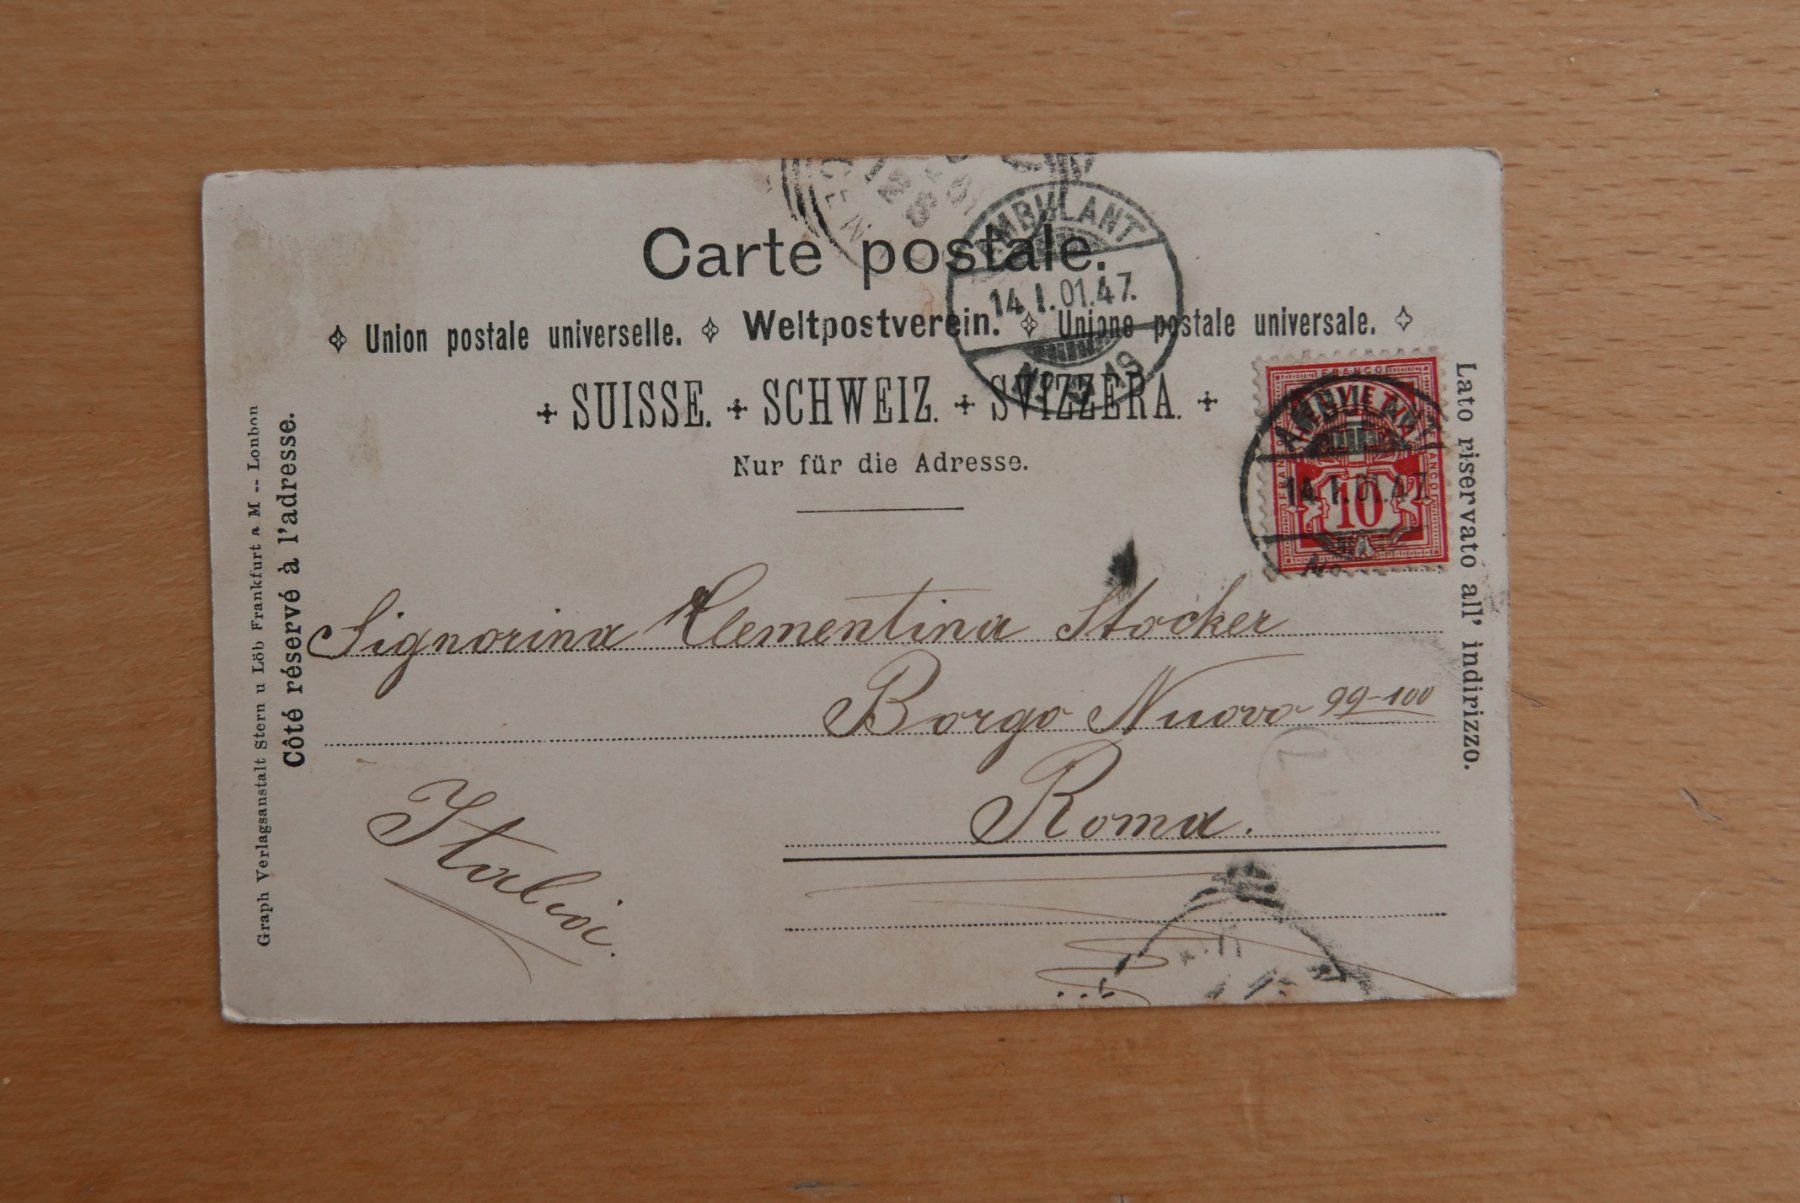 Carte postale.
AMBULANT
14.I.01.47.
Union postale universelle. Weltpostverein. Unione postale universale.
SUISSE. SCHWEIZ. SVIZZERA.
Nur für die Adresse.
FRANCO
10
14.I.01.47.
Graph Verlagsanstalt Stern u Löb Frankfurt a M -- Lonbon
Côté réservé à l'adresse.
Lato riservato all' indirizzo.
Signorina Clementina Stocker
Borgo Nuovo 99-100
Roma.
Italia.